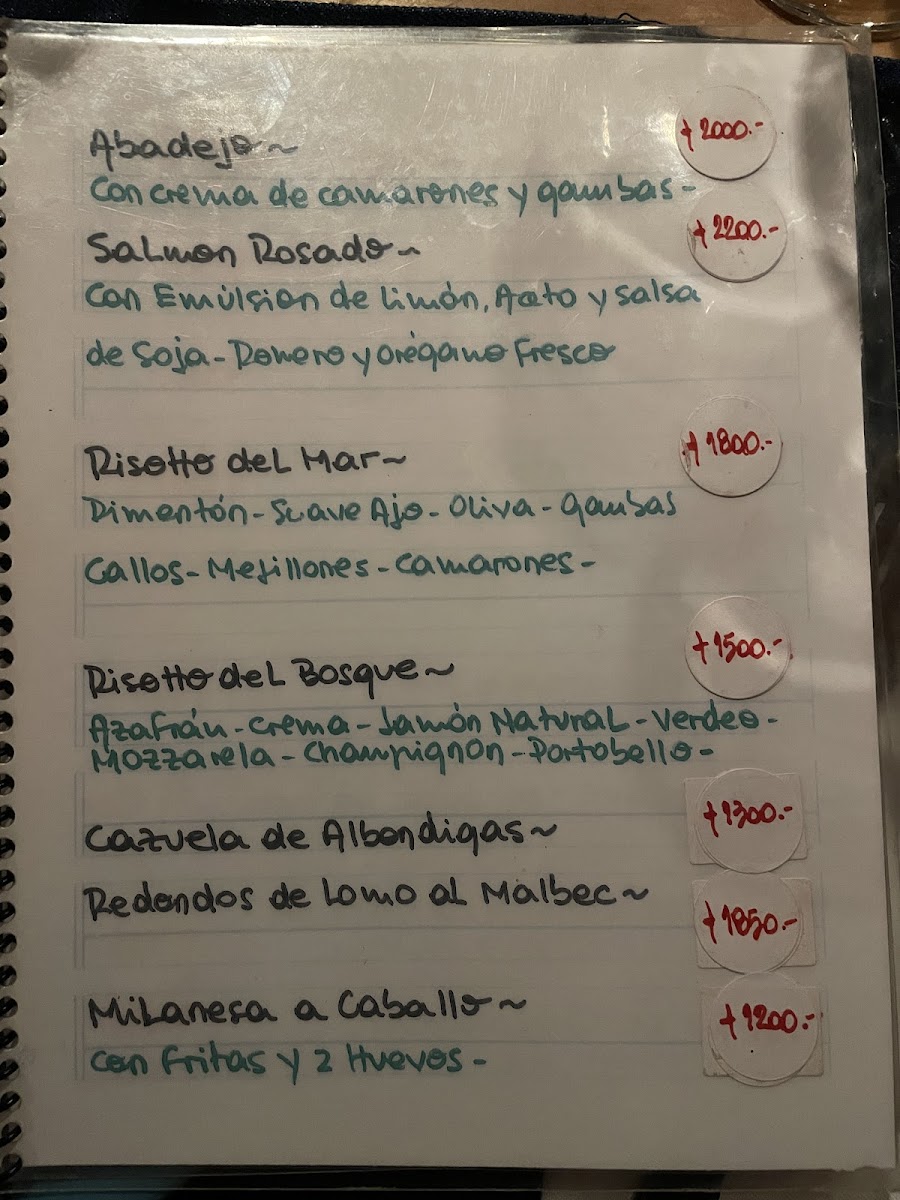 Abadejo~ +2000.-
Con crema de camarones y gambas-
Salmon Rosado~ +2200.-
Con Emúlsion de limón, Aceto y salsa
de Soja - Romero y orégano Fresco
Risotto del Mar~ +1800.-
Pimentón - Suave Ajo - Oliva - gambas
Callos - Mejillones - Camarones -
Risotto del Bosque~ +1500.-
Azafrán - crema - Jamón Natural - Verdeo -
Mozzarela - Champignon - Portobello -
Cazuela de Albondigas~ +1300.-
Redondos de Lomo al Malbec~ +1850.-
Milanesa a Caballo~ +1200.-
con Fritas y 2 Huevos -